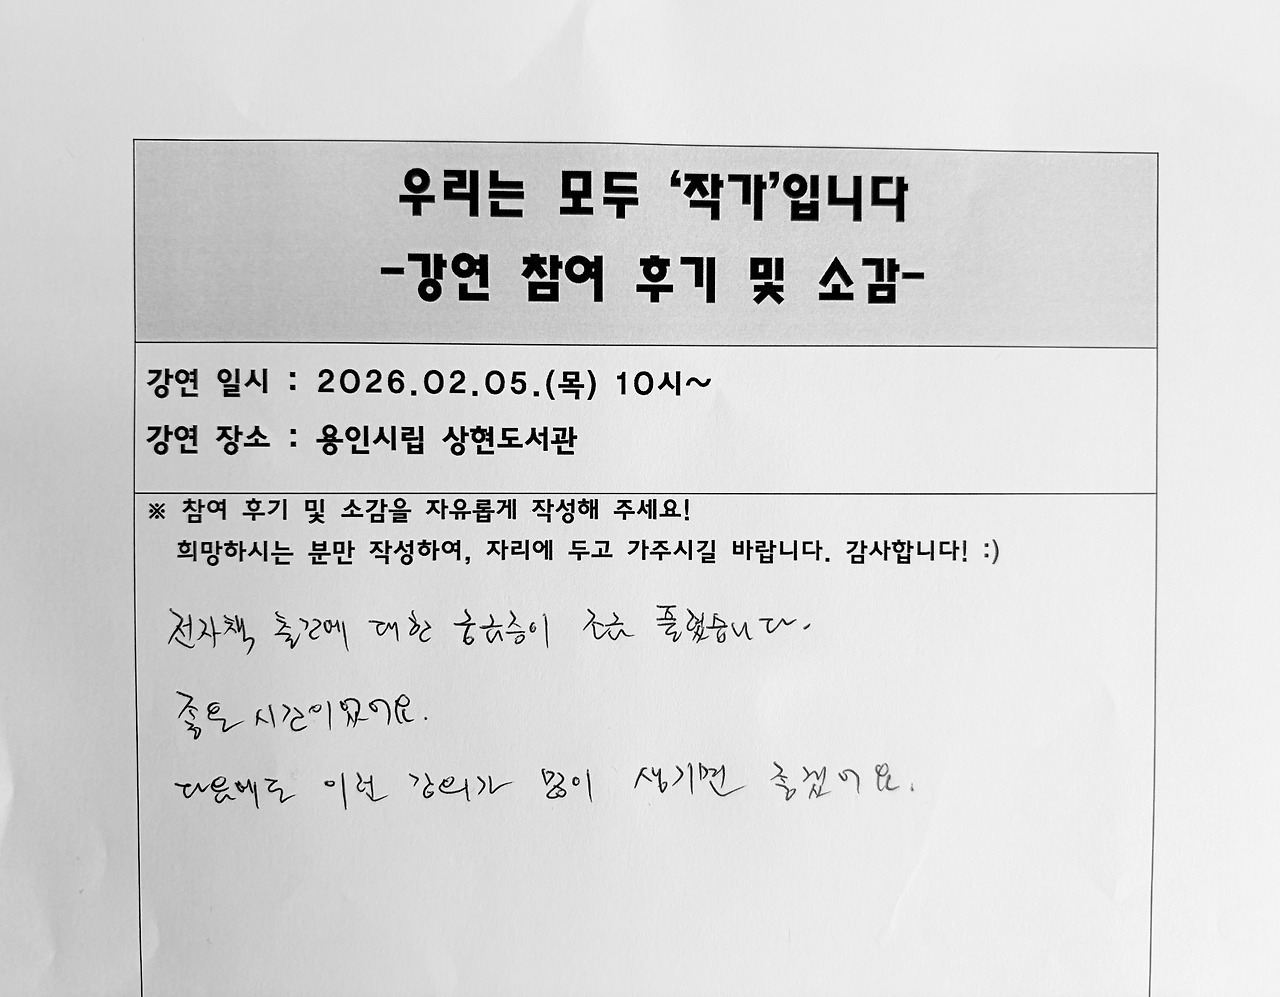 우리는 모두 ‘작가’입니다
-강연 참여 후기 및 소감-
강연 일시 : 2026.02.05.(목) 10시~
강연 장소 : 용인시립 상현도서관
※ 참여 후기 및 소감을 자유롭게 작성해 주세요!
희망하시는 분만 작성하여, 자리에 두고 가주시길 바랍니다. 감사합니다! :)
전자책 출간에 대한 궁금증이 조금 풀렸습니다.
좋은 시간이었어요.
다음에도 이런 강의가 많이 생기면 좋겠어요.